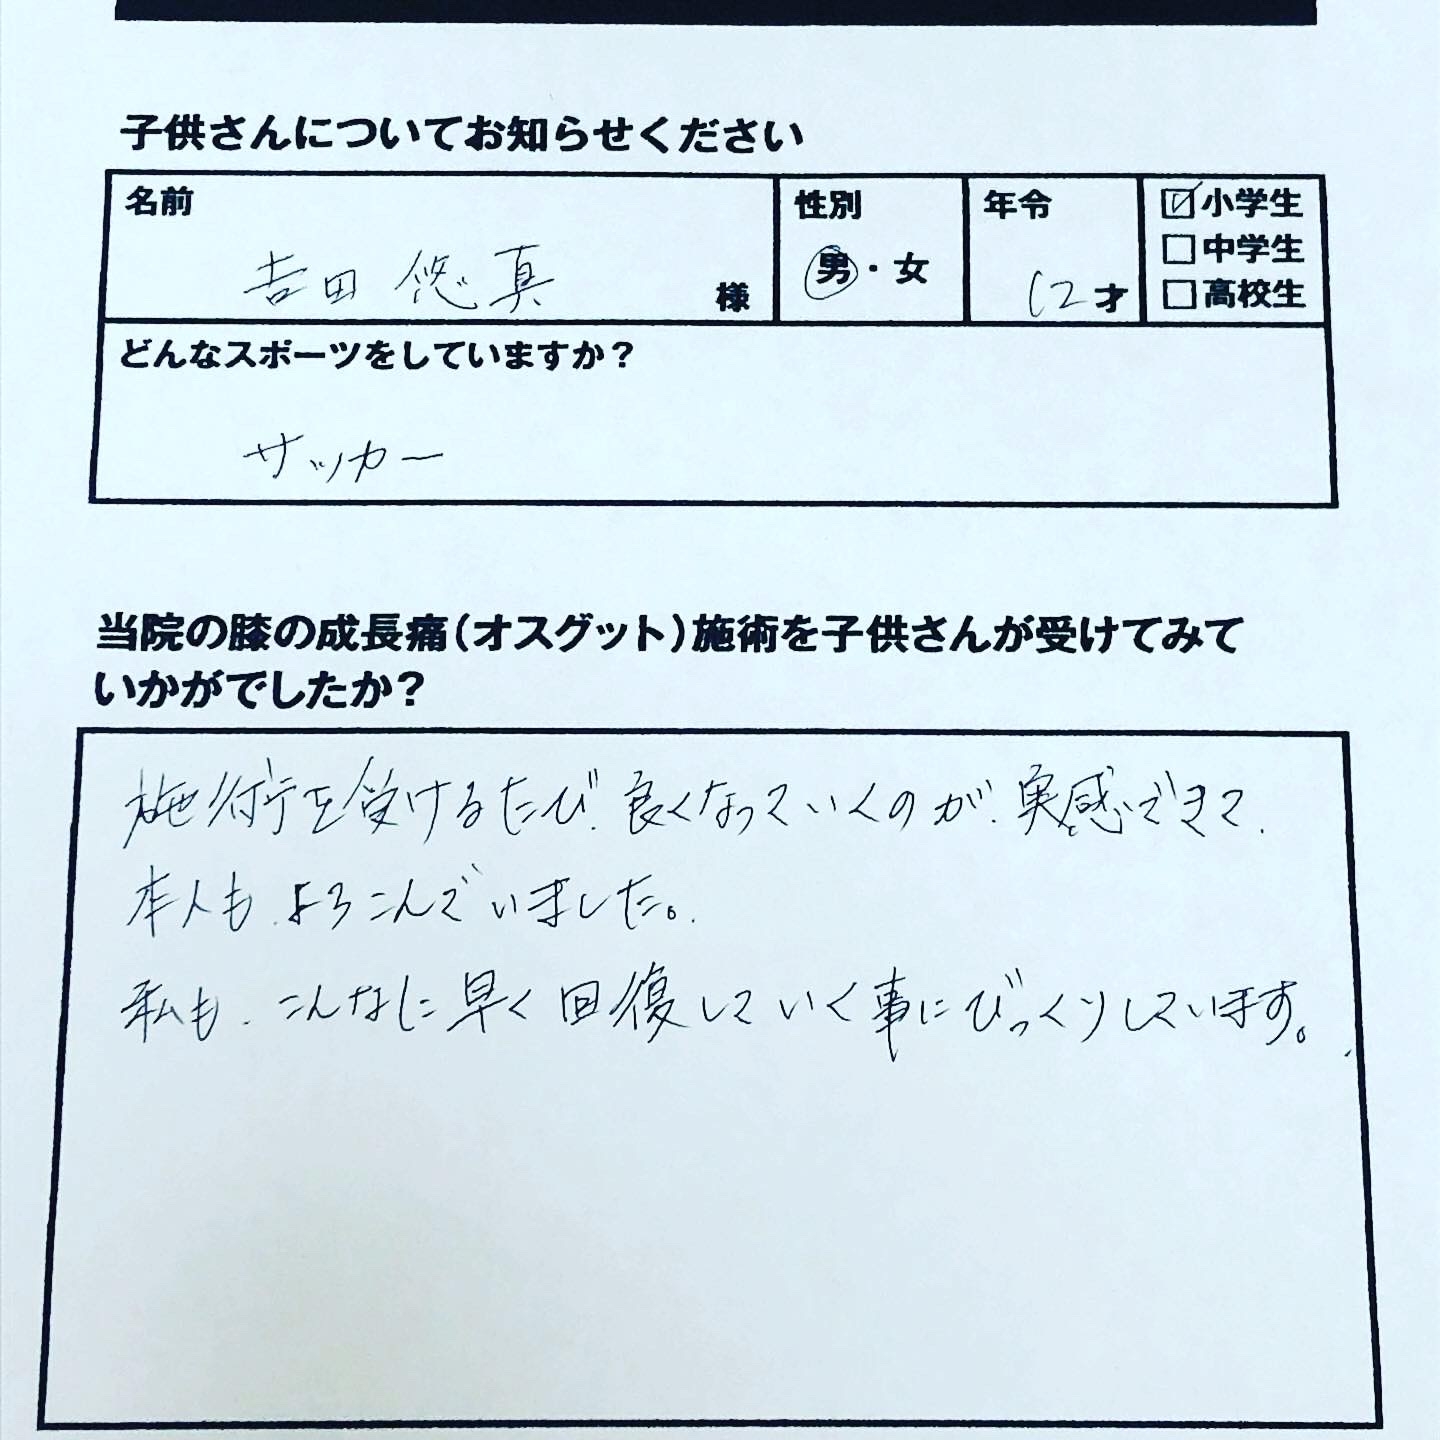 子供さんについてお知らせください
名前 性別 年令 ☑小学生
□中学生
吉田 悠真 様 男・女 12才 □高校生
どんなスポーツをしていますか?
サッカー
当院の膝の成長痛(オスグット)施術を子供さんが受けてみて
いかがでしたか?
施術を受けるたび、良くなっていくのが、実感できて、
本人も、よろこんでいました。
私も、こんなに早く回復していく事にびっくりしています。